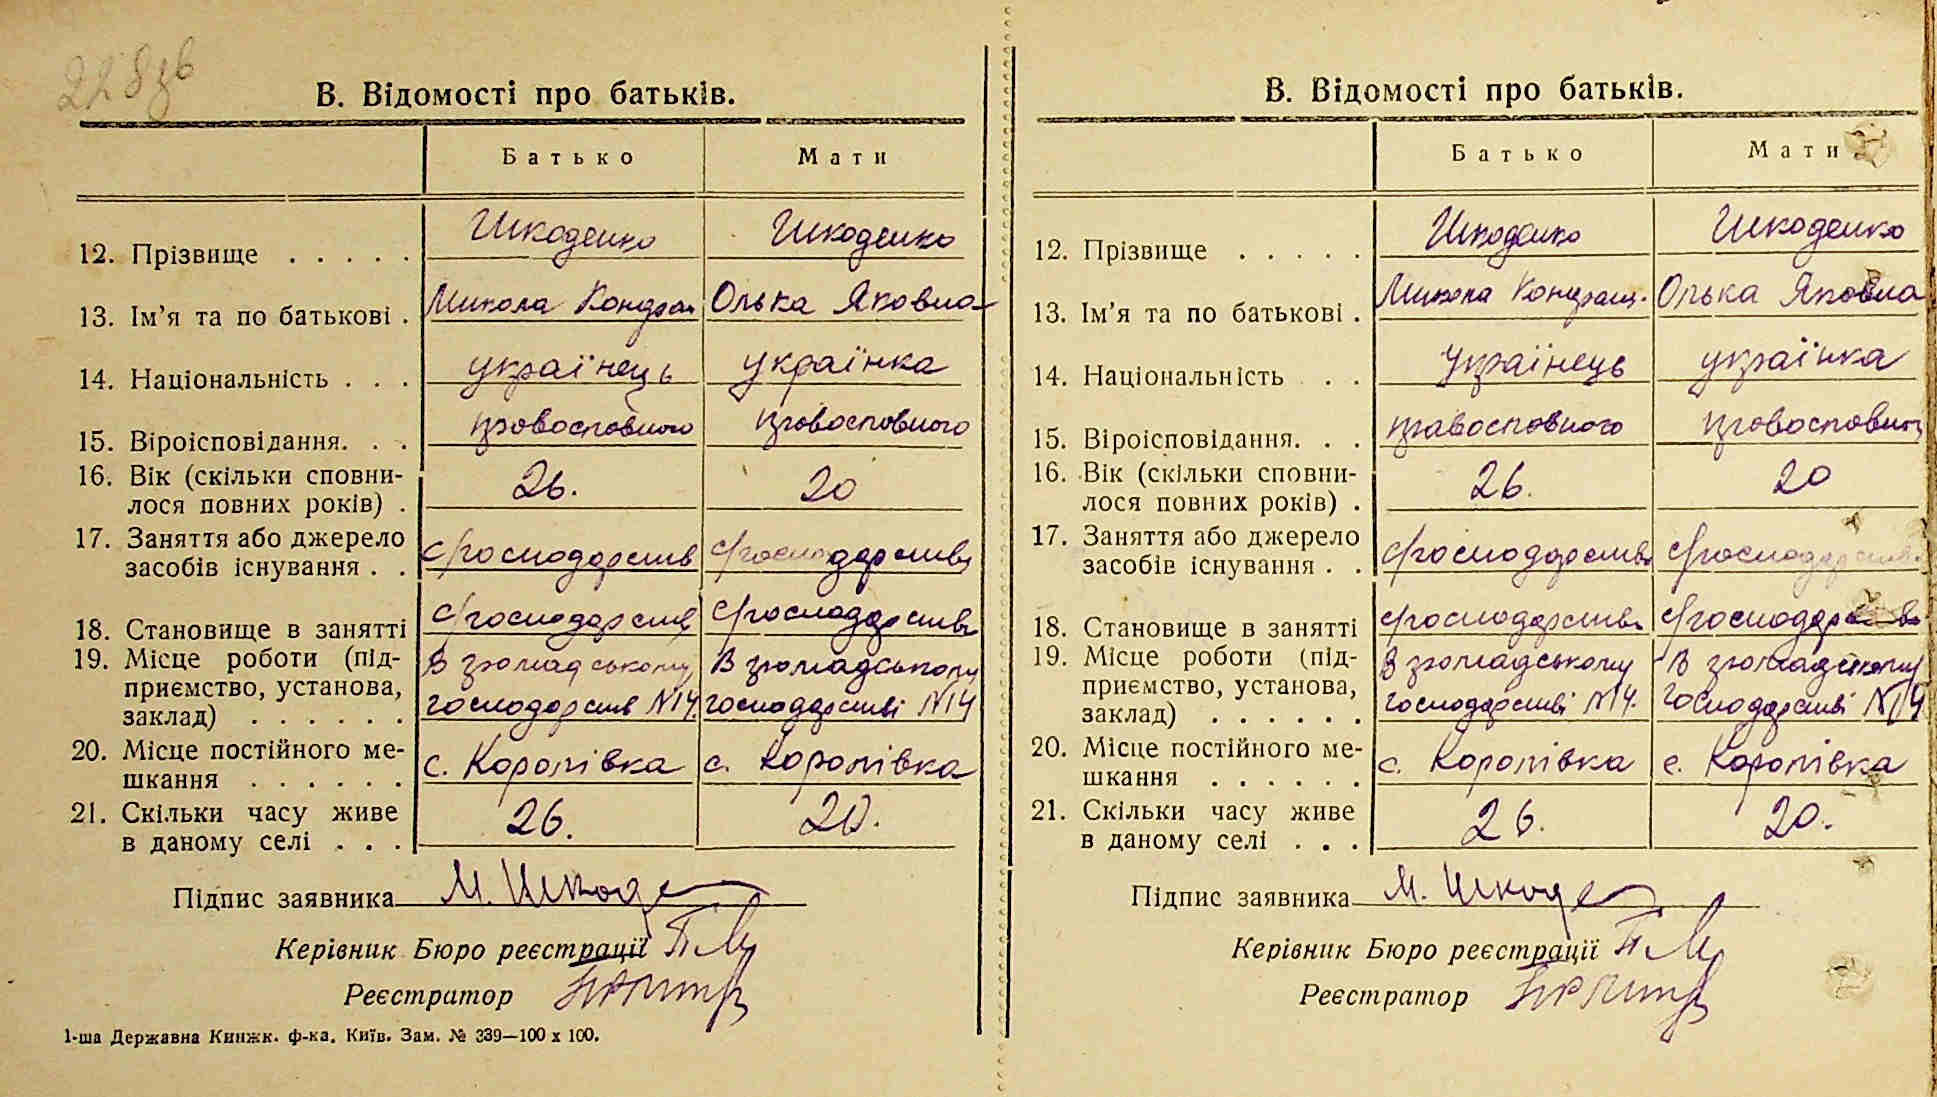 228зв
В. Відомості про батьків.
Батько Мати
12. Прізвище . . . . . Шкоденко Шкоденко
13. Ім’я та по батькові . Микола Кондрат Олька Яковна
14. Національність . . . українець українка
15. Віроісповідання. . . провославного провославного
16. Вік (скільки сповни-
лося повних років) . 26. 20
17. Заняття або джерело
засобів існування . . с/господарств с/господарстві
18. Становище в занятті с/господарств с/господарстві
19. Місце роботи (під- В громадському В громадському
приємство, установа, господарств №14. господарстві №14
заклад) . . . . . .
20. Місце постійного ме- с. Королівка с. Королівка
шкання . . . . . .
21. Скільки часу живе 26. 20.
в даному селі . . .
Підпис заявника М. Шкоде
Керівник Бюро реєстрації
Реєстратор
1-ша Державна Кинжк. ф-ка. Київ. Зам. № 339—100 х 100.
В. Відомості про батьків.
Батько Мати
12. Прізвище . . . . . Шкоденко Шкоденко
13. Ім’я та по батькові . Микола Кондрат. Олька Яковна
14. Національність . . Українець українка
15. Віроісповідання. . . православного провославног
16. Вік (скільки сповни-
лося повних років) . 26. 20
17. Заняття або джерело
засобів існування . . с/господарстві с/господарстві
18. Становище в занятті с/господарстві с/господарстві
19. Місце роботи (під- В громадському В громадському
приємство, установа, господарстві №14. господарстві №14
заклад) . . . . . .
20. Місце постійного ме- с. Королівка с. Королівка
шкання . . . . . .
21. Скільки часу живе 26. 20.
в даному селі . . .
Підпис заявника М. Шкоде
Керівник Бюро реєстрації
Реєстратор